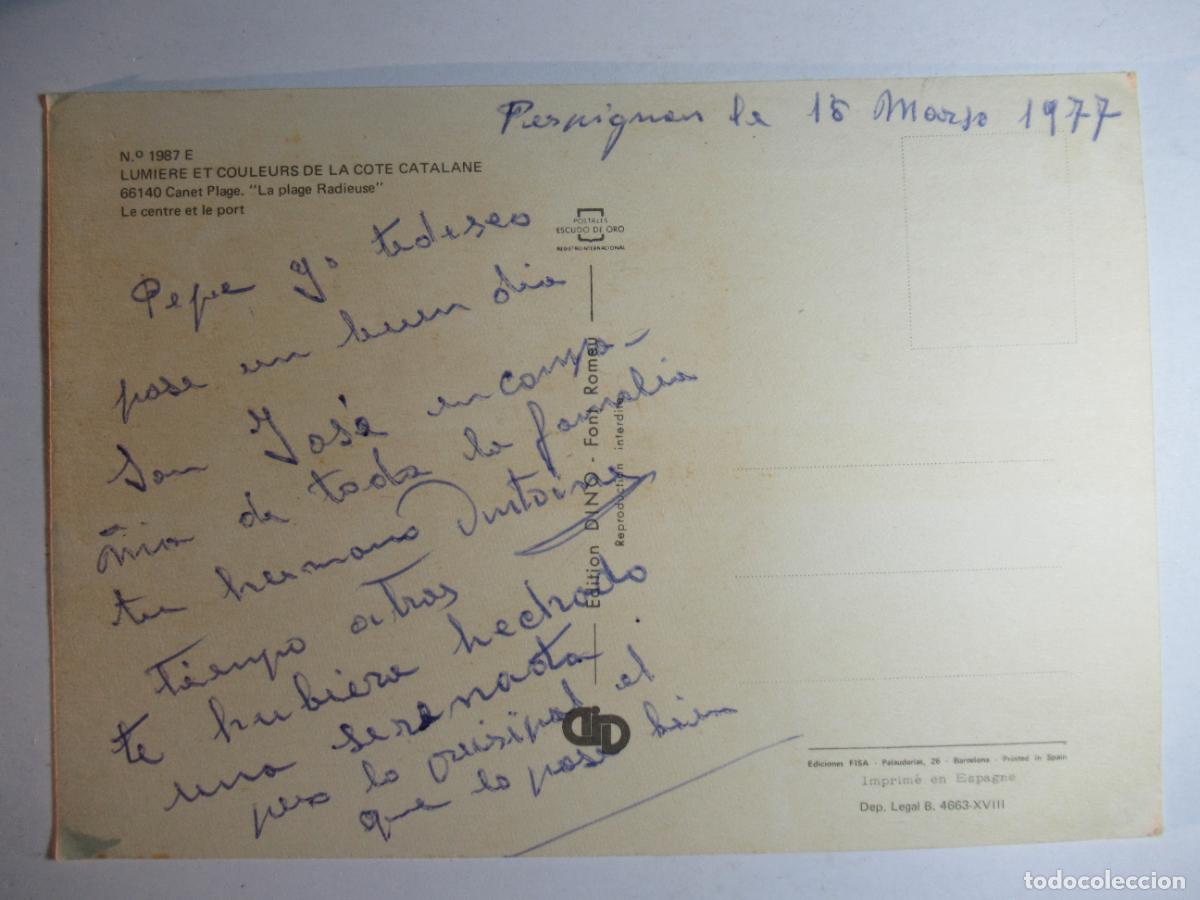 Perpignan le 15 Marso 1977
N.º 1987 E
LUMIERE ET COULEURS DE LA COTE CATALANE
66140 Canet Plage. "La plage Radieuse"
Le centre et le port
POSTALES
ESCUDO DE ORO
REGISTRO INTERNACIONAL
Pepe yº tedeseo
pase un buen dia
San José en compa-
ñia de toda la familia
tu hermano Antoine
tiempo atras
te hubiera hechado
una serenata.
pero lo prisipal el
que lo pase bien
Edition DINO - Font Romeu
Reproduction interdite
Ediciones FISA - Palauderias, 26 - Barcelona - Printed in Spain
Imprimé en Espagne
Dep. Legal B. 4663-XVIII
todocoleccion